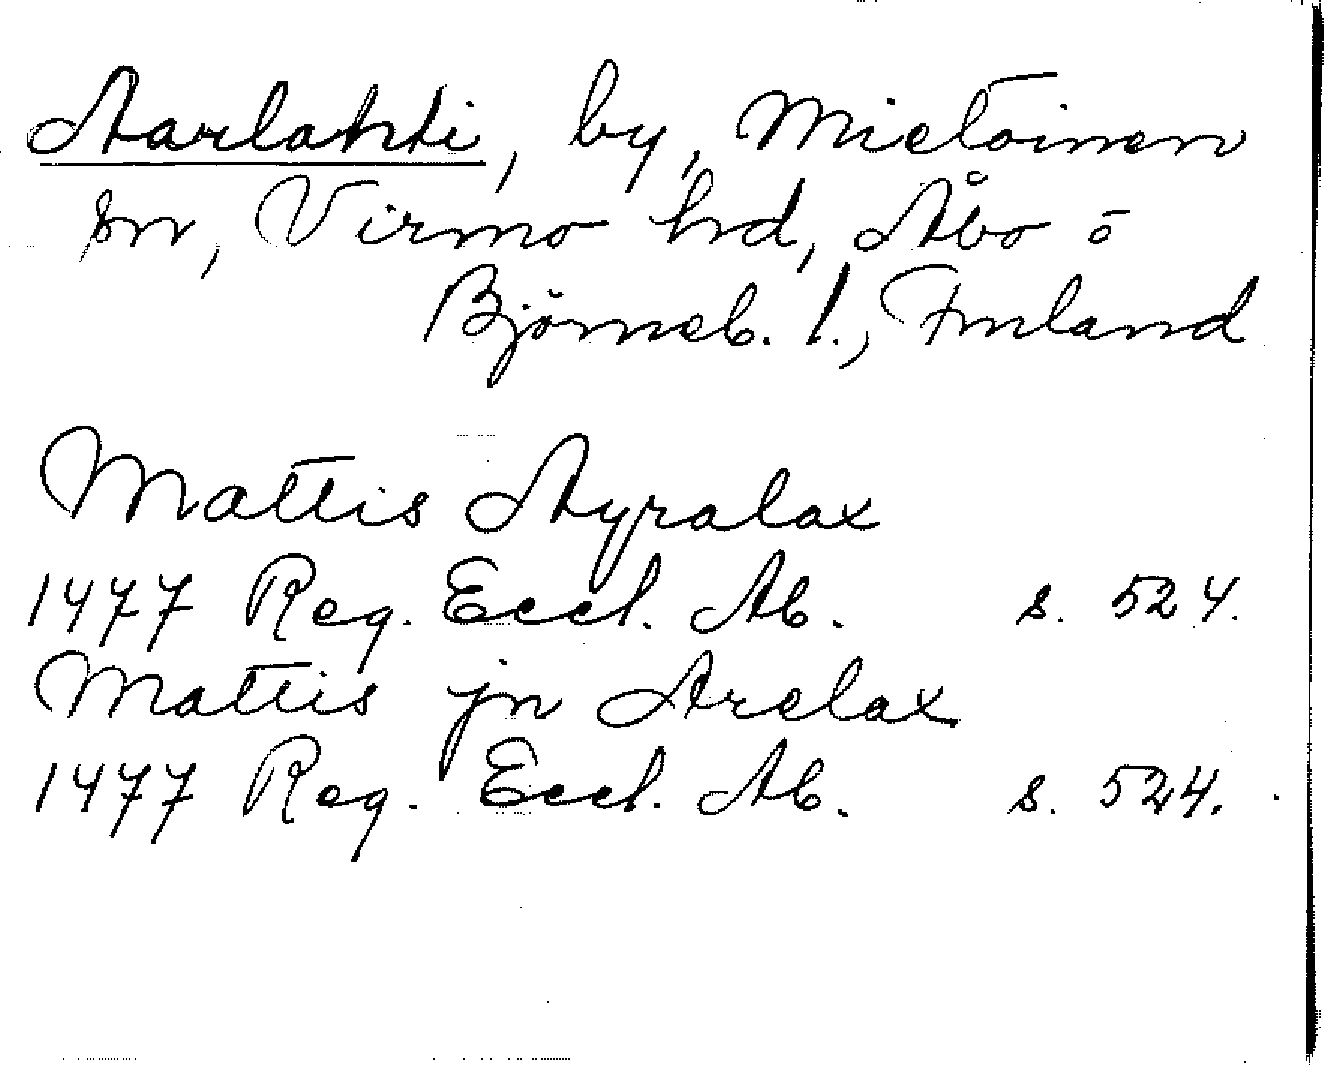 Aarlahti, by, Mietoinen
sn, Virmo hd, Åbo o
Björneb. l., Finland
Mattis Ayralax
1477 Reg. Eccl. Ab. s. 524.
Mattis jn Arelax
1477 Reg. Eccl. Ab. s. 524.